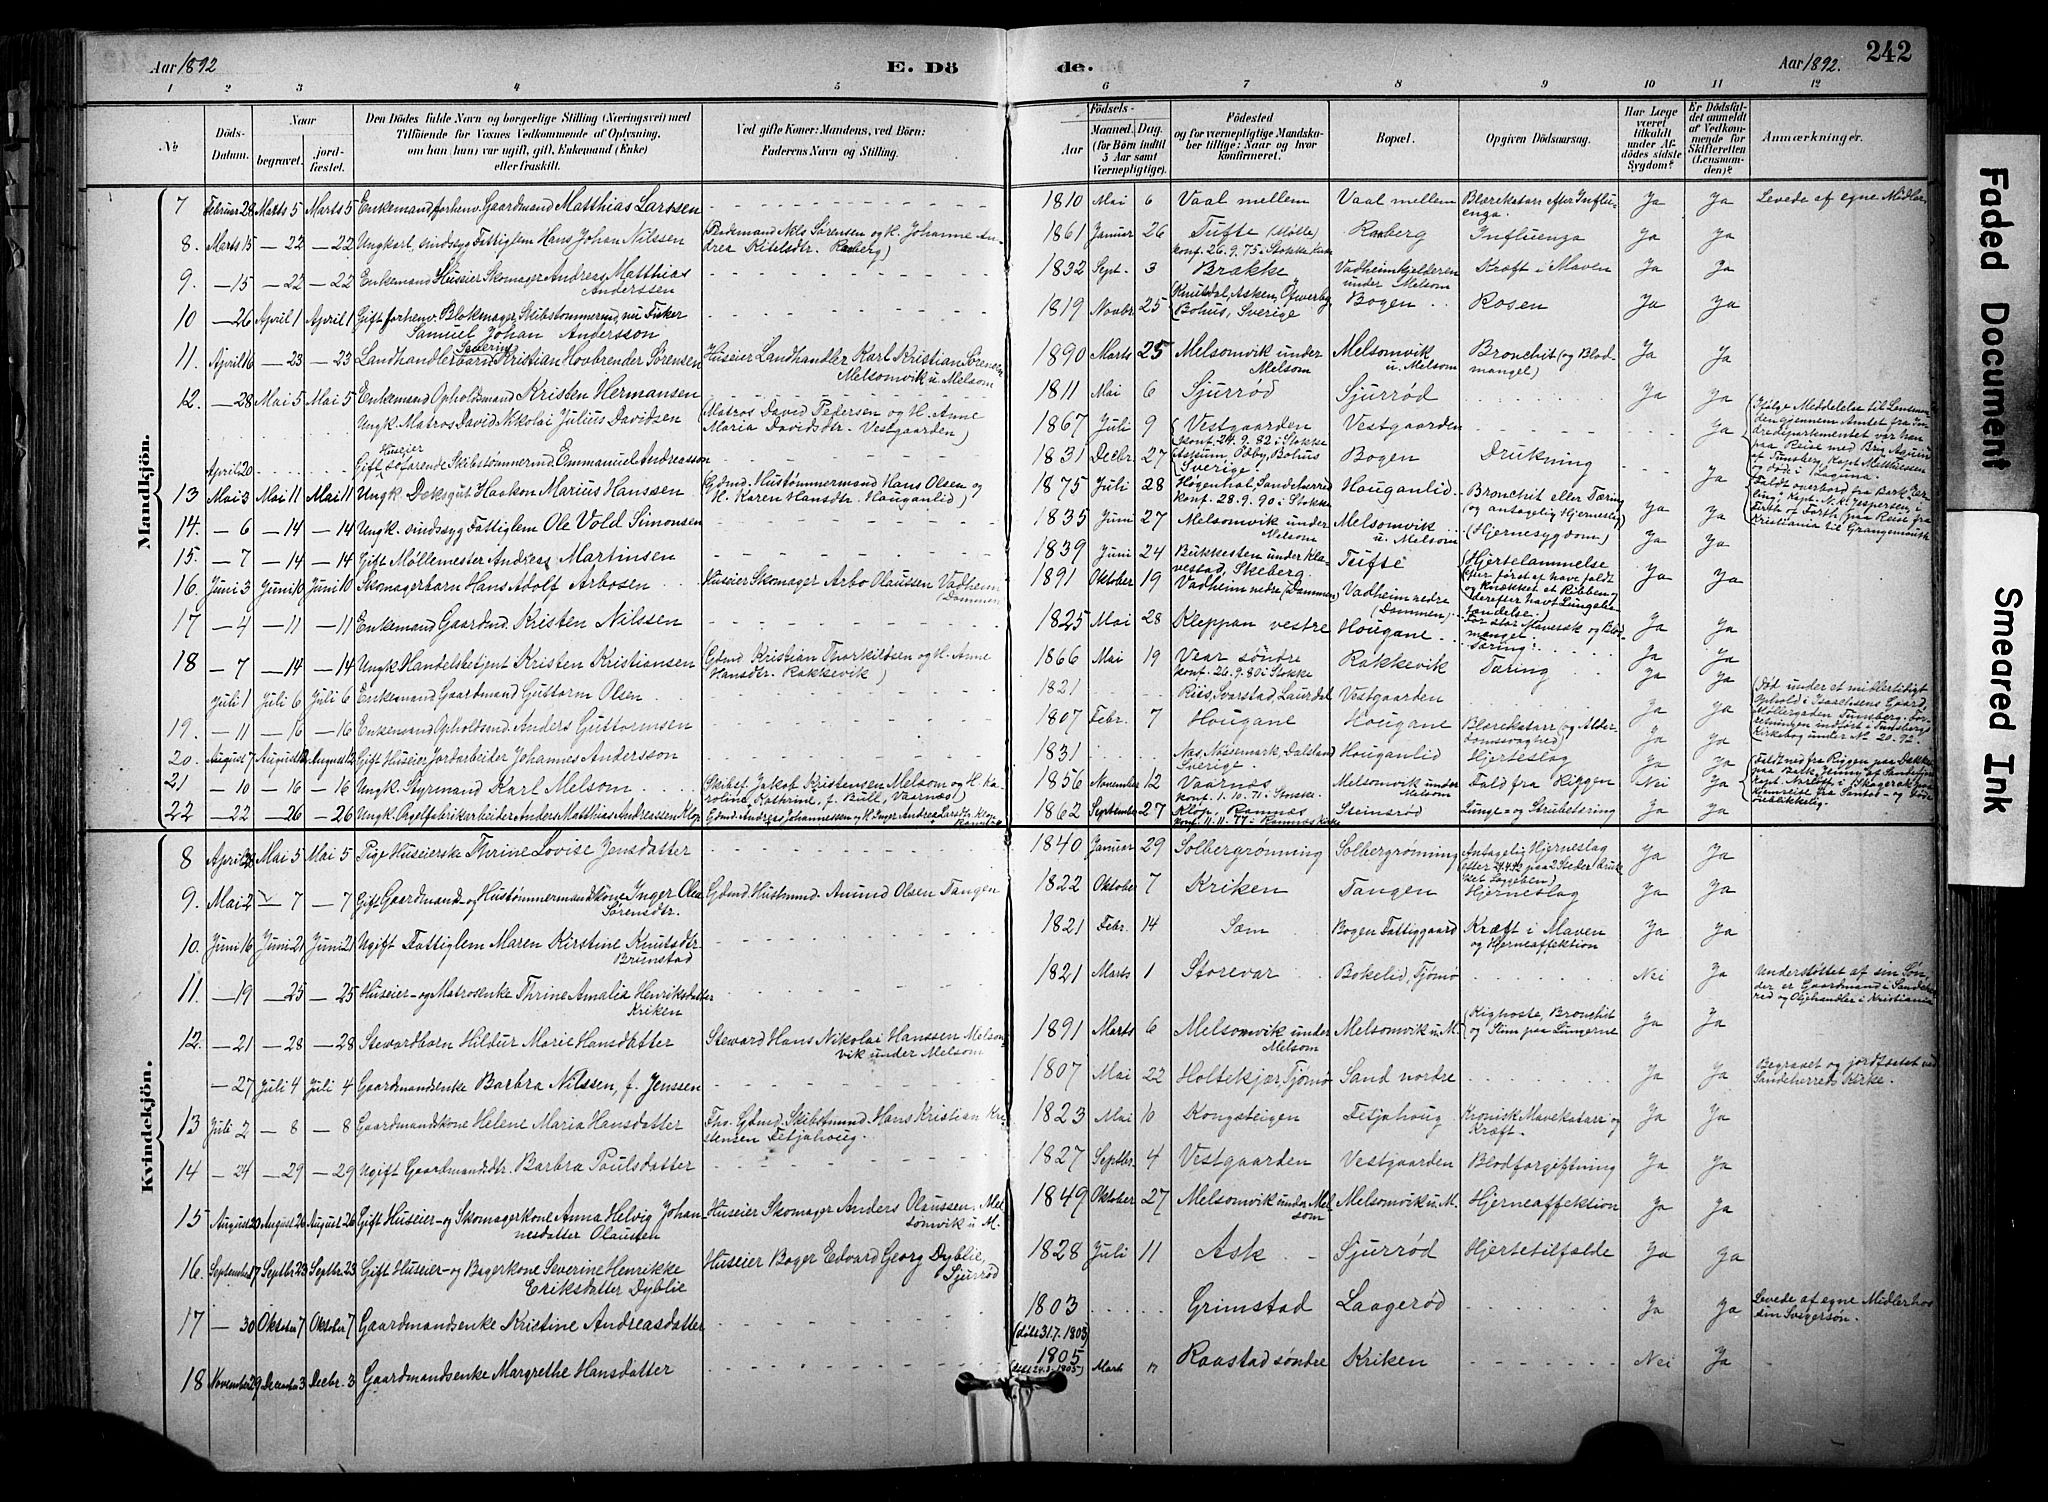 Aar 1892
E. Dö
de.
Aar 1892.
242
1 2 3 4 5 6 7 8 9 10 11 12
No
Döds-Datum.
Naar
begravet.
jord-fæstet.
Den Dödes fulde Navn og borgerlige Stilling (Næringsvei) med
Tilföiende for Voxnes Vedkommende af Oplysning,
om han (hun) var ugift, gift, Enkemand (Enke)
eller fraskilt.
Ved gifte Koner: Mandens, ved Börn:
Faderens Navn og Stilling.
Födsels-
Aar
Maaned. Dag.
(for Börn indtil
5 Aar samt
Værnepligtige).
Födested
og for værnepligtige Mandska-
ber tillige: Naar og hvor
konfirmeret.
Bopæl.
Opgiven Dödsaarsag.
Har Læge
været
tilkaldt
under Af-
dödes sidste
Sygdom?
Er Dödsfal-
det anmeldt
af Vedkom-
mende for
Skifteretten
(Lensman-
den)?
Anmærkninger.
Mandkjön.
7 Februar 28 Marts 5 Marts 5 Enkemand forhenv. Gaardmand Matthias Larssen 1810 Mai 6 Vaal mellem Vaal mellem Blærekatarr efter Influ- Ja Ja Levede af egne Midler
enza
8. Marts 15 — 22 — 22 Ungkarl, sindssyg Fattiglem Hans Johan Nilssen Nils Sørensen og H. Johanne An- 1861 Januar 26 Tufte (Mølle) Influenza Ja Ja
drea Kitelsdtr. konf. 26.9.75 i Stokke Kirke
9. — 15 — 22 — 22 Enkemand Huseier Skomager Andreas Matthias 1832 Sept. 3 Brække Vadheimkjelderen Kræft i Maven Ja Ja
Anderssen under Melsom
10 — 26 April 1 April 1 Gift forhenv. Blokmager, Skibstømmermd nu Fisker 1819 Novbr. 25 Bogen Rosen Ja Ja
Samuel Johan Andersson Bohus, Sverige
11. April 16 — 23 — 23 Landhandlerbarn Kristian Hovbrender Sørensen Huseier Landhandler Karl Kristian Sørensen 1890 Marts 25 Melsomvik under Melsomvik Bronchit (og Blod- Ja Ja
Melsomvik u. Melsom Melsom u. Melsom mangel)
12. — 28 Mai 5 Mai 5 Enkemand Opholdsmand Kristen Hermansen 1811 Mai 6 Sjurrød Sjurrød Ja Ja
Ungk. Matros David Nikolai Julius Davidsen (Matros David Pedersen og H. Anne 1867 Juli 9 Vestgaarden Vestgaarden Ja
Maria Davidsdtr. Vestgaarden) konf. 24.9.82 i Stokke
April 20 Gift Huseier søfarende Skibstømmermd. Emmanuel Andreasson 1831 Decbr. 27 Bohus Bogen Drukning Ja
Sverige
13 Mai 3 Mai 11 Mai 11 Ungk. Deksgut Haakon Marius Hanssen Gdmd. Hustømmermand Hans Olsen og 1875 Juli 28 Sandeherred Houganlid Bronchit eller Tæring
H. Karen Hansdtr. Houganlid) konf. 28.9.90 i Stokke (og antagelig Hjerneslag Ja Ja
14. — 6 — 14 — 14 Ungk. sindssyg Fattiglem Ole Vold Simonsen 1835 Juni 27 Melsomvik under Melsomvik (Hjernesygdom) Ja Ja
Melsom u. Melsom
15. — 7 — 14 — 14 Gift Möllemester Andreas Martinsen 1839 Juni 24 Tufte Hjertelammelse Ja Ja
16. Juni 3 Juni 10 Juni 10 Skomagerbarn Hans Adolf Arbosen Huseier Skomager Arbo Olaussen Vadheim 1891 Oktober 19 Vadheim nedre (Dammen) Vadheim nedre
(Dammen) (Dammen)
17 — 4 — 11 — 11 Enkemand Gaardmd. Kristen Nilssen 1825 Mai 28 Kleppan vestre Hougane Ja Ja
18 — 7 — 14 — 14 Ungk. Handelsbetjent Kristen Kristiansen Gdmd Kristian Thorkildsen og H. Anne 1866 Mai 19 Vear søndre Rakkevik Tæring Ja Ja
Hansdtr. Rakkevik) konf. 26.9.80 i Stokke
Juli 1 Juli 6 Juli 6 Enkemand Gaardmand Guttorm Olsen 1821 Svarstad, Laurdal Vestgaarden Ja Ja
19. — 11 — 16 — 16 Enkemand Opholdsmd Anders Guttormsen 1807 Febr. 7 Hougane Hougane Blærekatarr (og Alder-
domssvaghed)
20 August 7 August 12 August 12 Gift Huseier Jordarbeider Johannes Andersson 1831 Nøssemark, Dalsland Houganlid Hjerteslag
Sverige
21. — 10 — 16 — 16 Ungk. Styrmand Karl Melsom Skibst. Jakob Kristensen Melsom og H. Ka- 1856 November 12 Vaarnæs Melsomvik under Fald fra Riggen Nei Ja
roline Kathrine, f. Bull, Vaarnæs) konf. 1.10.71 i Stokke Melsom
22 — 22 — 26 — 26 Ungk. Orgelfabrikarbeider Anders Matthias Andreassen Klop 1862 September 27 Klop, Ramnæs Steinsrød Lunge- og Strubetæring Ja Ja
Kvindekjön.
8 April 28 Mai 5 Mai 5 Pige Huseierske Thrine Lovise Jensdatter 1840 Januar 29 Solbergrønning Solbergrønning Antagelig Hjerneslag Ja Ja
9. Mai 2 — 7 — 7 Gift Gaardmand- og Hustømmermandskone Inger Olea Gdmd. Hustmmd. Amund Olsen Tangen 1822 Oktober 7 Kriken Tangen Hjerneslag Ja Ja
Sørensdtr.
10. Juni 16 Juni 21 Juni 21 Ugift Fattiglem Maren Kirstine Knutsdtr. 1821 Febr. 14 Sam Bogen Fattiggaard Kræft i Maven Ja Ja
Brunstad og Hjerneaffektion
11. — 19 — 25 — 25 Huseier- og Matrosenke Thrine Amalia Henriksdatter 1821 Marts 1 Storevar Bokelid, Tjømø Nei Ja Understøttet af sin Søn,
Kriken der er Gaardmand i Sandeher-
red og Oljehandler i Kristiania
12. — 21 — 28 — 28 Stewardbarn Hildur Marie Hansdatter Steward Hans Nikolai Hanssen Melsom- 1891 Marts 6 Melsomvik under Melsomvik u. M. (Kighoste, Bronchit Ja Ja
vik under Melsom Melsom og Slim paa Lungerne
— 27 Juli 4 Juli 4 Gaardmandsenke Barbra Nilssen, f. Jenssen 1807 Mai 22 Holtekjær, Tjømø Sand nordre Ja Ja Begravet og jordfæstet ved
Sandeherreds Kirke.
13 Juli 2 — 8 — 8 Gaardmandskone Helene Maria Hansdatter Fhv. Gdmd. Skibstmmd. Hans Kristian Kri- 1823 Mai 10 Kongsteigen Fetjahoug Kronisk Mavekatarr og Ja Ja
stensen Fetjahoug. Kræft.
14 — 24 — 29 — 29 Ugift Gaardmandsdtr. Barbra Paulsdatter 1827 Septbr. 4 Vestgaarden Vestgaarden Blodforgiftning Ja Ja
15 August 20 August 26 August 26 Gift Huseier- og Skomagerkone Anna Helvig Johan- Huseier Skomager Anders Olaussen, Mel- 1849 Oktober 27 Melsomvik under Mel- Melsomvik u. M. Hjerneaffektion Ja Ja
nesdatter Olaussen somvik u. M. som
16. September 17 Septbr. 23 Septbr. 23 Gift Huseier- og Bagerkone Severine Henrikke Huseier Bager Edvard Georg Dyblie, 1828 Juli 11 Ask Sjurrød Hjertetilfælde Ja Ja
Eriksdatter Dyblie Sjurrød
17 — 30 Oktober 7 Oktober 7 Gaardmandsenke Kristine Andreasdatter 1803 Grimstad Laagerød Ja Ja Levede af egne Midler hos
(døbt 31.7.1803) sin Svigersøn.
18 November 29 December 3 Decbr. 3 Gaardmandsenke Margrethe Hansdatter 1805 Marts Raastad søndre Kriken Nei Ja
Faded Document
Smeared Ink